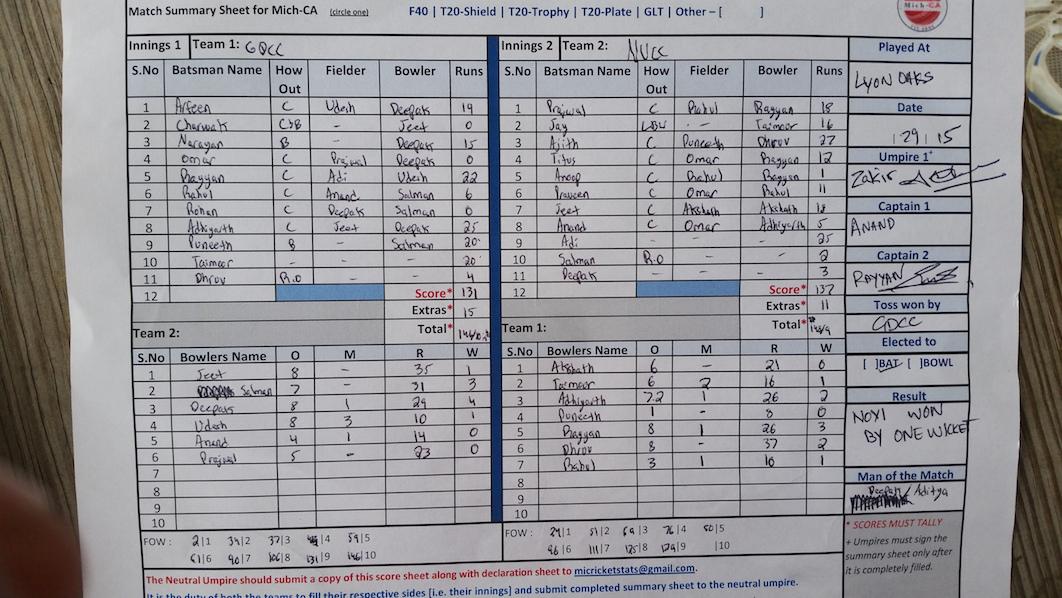 Match Summary Sheet for Mich-CA (circle one) F40 | T20-Shield | T20-Trophy | T20-Plate | GLT | Other – [ ]
Mich-CA
Innings 1 Team 1: GDCC
S.No Batsman Name How Out Fielder Bowler Runs
1 Arfeen C Udesh Deepak 19
2 Charwak C&B - Jeet 0
3 Narayan B - Deepak 15
4 Omar C Prajwal Deepak 0
5 Rayyan C Adi Udesh 22
6 Rahul C Anand Salman 6
7 Rohan C Deepak Salman 0
8 Adhiyarth C Jeet Deepak 25
9 Puneeth B - Salman 20
10 Taimoor - - 20
11 Dhruv R.O - - 4
12 Score* 131
Extras* 15
Total*
Team 2:
S.No Bowlers Name O M R W
1 Jeet 8 - 35 1
2 Salman 7 - 31 3
3 Deepak 8 1 29 4
4 Udesh 8 3 10 1
5 Anand 4 1 14 0
6 Prajwal 5 - 23 0
7
8
9
10
FOW : 2|1 34|2 37|3 |4 59|5
61|6 90|7 106|8 131|9 146|10
Innings 2 Team 2: NVCC
S.No Batsman Name How Out Fielder Bowler Runs
1 Prajwal C Rahul Rayyan 18
2 Jay LBW - Taimoor 16
3 Ajith C Puneeth Dhruv 27
4 Titus C Omar Rayyan 12
5 Anoop C Rahul Rayyan 1
6 Praveen C Omar Rahul 11
7 Jeet C Akshath Akshath 18
8 Anand C Omar Adhiyarth 5
9 Adi - - - 25
10 Salman R.O - 2
11 Deepak - - - 3
12 Score* 137
Extras* 11
Total* 148/9
Team 1:
S.No Bowlers Name O M R W
1 Akshath 6 - 21 0
2 Taimoor 6 2 16 1
3 Adhiyarth 7.2 1 26 2
4 Puneeth 1 - 8 0
5 Rayyan 8 1 26 3
6 Dhruv 8 - 37 2
7 Rahul 3 1 10 1
8
9
10
FOW : 29|1 51|2 69|3 76|4 80|5
96|6 111|7 125|8 129|9 |10
Played At
LYON OAKS
Date
29|15
Umpire 1+
Zakir
Captain 1
ANAND
Captain 2
RAYYAN
Toss won by
GDCC
Elected to
[ ]BAT [ ]BOWL
Result
WON
BY ONE WICKET
Man of the Match
Deepak / Aditya
* SCORES MUST TALLY
+ Umpires must sign the
summary sheet only after
it is completely filled.
The Neutral Umpire should submit a copy of this score sheet along with declaration sheet to micricketstats@gmail.com.
It is the duty of both the teams to fill their respective sides [i.e. their innings] and submit completed summary sheet to the neutral umpire.